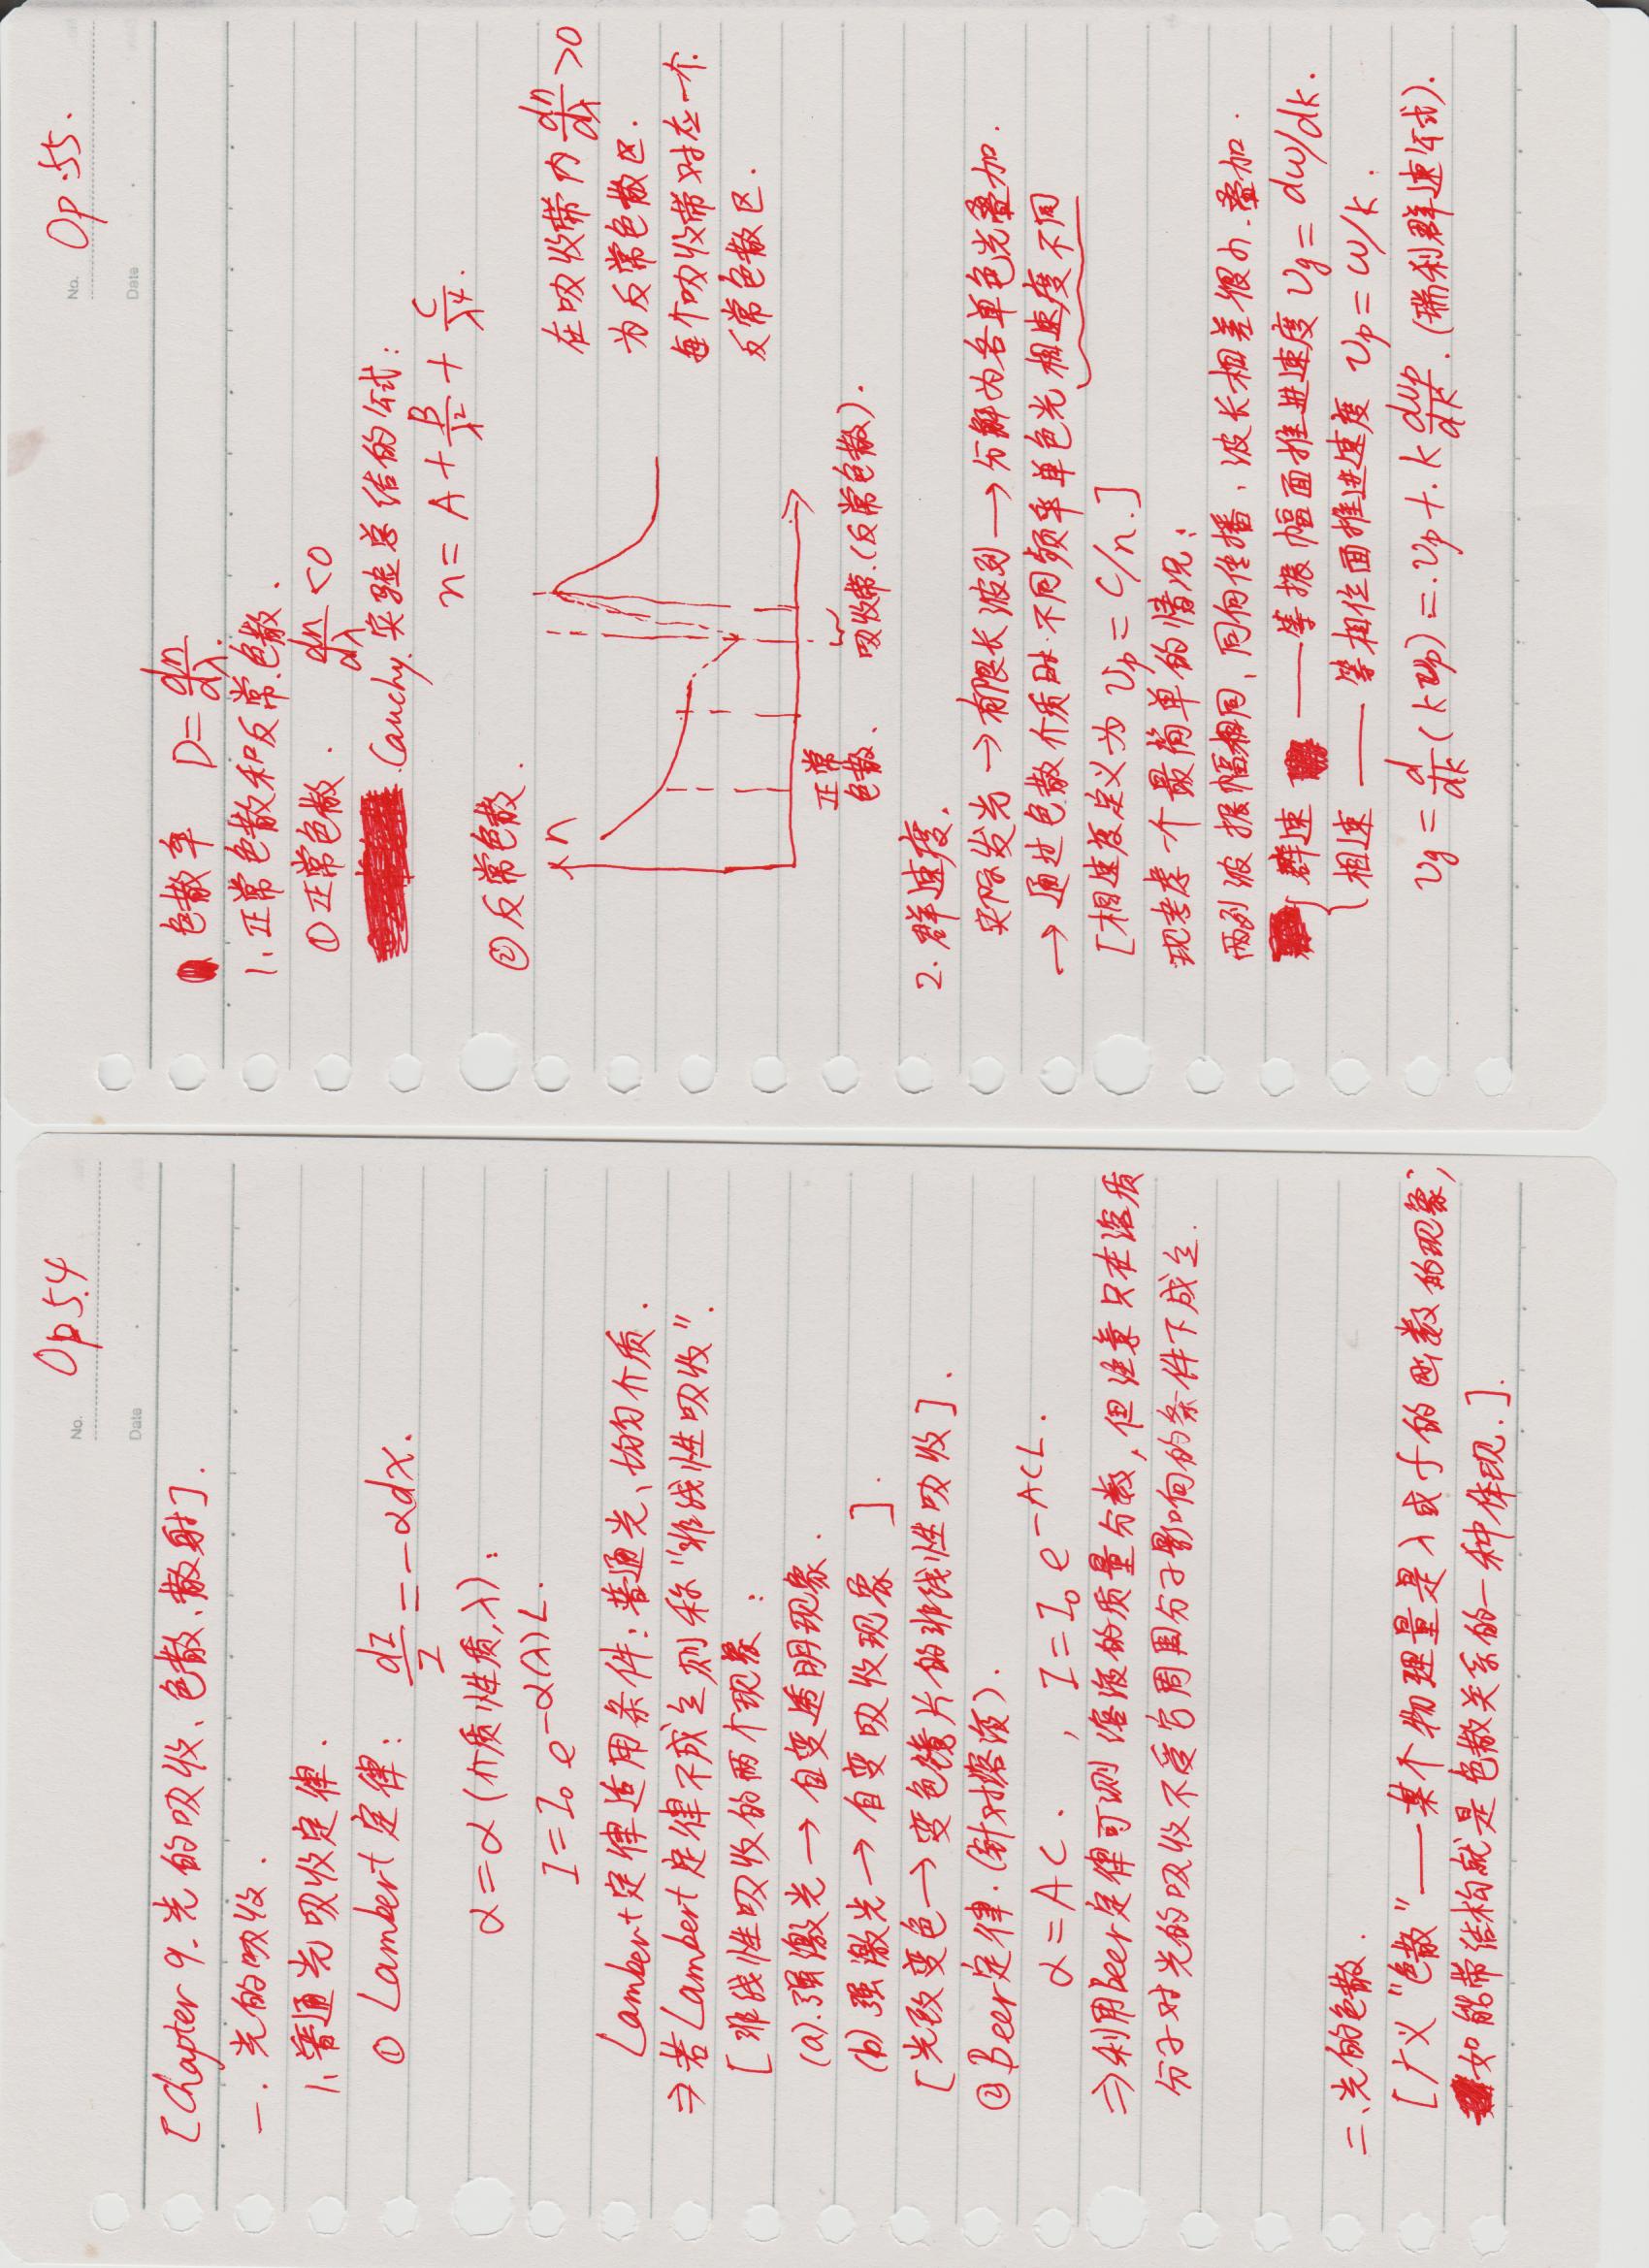 No. Op 54
Date
[Chapter 9. 光的吸收、色散、散射].
一. 光的吸收.
1. 普通光吸收定律.
① Lambert 定律: dI/I = -αdx.
α = α (介质性质, λ):
I = I₀ e^{-α(λ)L}.
Lambert定律适用条件: 普通光、均匀介质.
⇒ 若Lambert定律不成立则称"非线性吸收".
[非线性吸收的两个现象:
(a). 强激光 → 自变透明现象.
(b) 强激光 → 自变吸收现象 ].
[光致变色 → 变色镜片的非线性吸收].
② Beer定律. (针对溶液).
α = AC. , I = I₀ e^{-ACL}.
⇒ 利用Beer定律可测溶液的质量分数, 但注意只在溶质
分子对光的吸收不受它周围分子影响的条件下成立.
二、光的色散.
[广义"色散" —— 某个物理量是λ或f的函数的现象,
如能带结构就是色散关系的一种体现.].
No. Op.55.
Date
色散率 D = dn/dλ.
1. 正常色散和反常色散.
① 正常色散. dn/dλ < 0
Cauchy. 实验总结的公式:
n = A + B/λ² + C/λ⁴.
② 反常色散.
n
在吸收带内 dn/dλ > 0
为反常色散区.
每个吸收带对应一个
反常色散区.
正常
色散.
吸收带. (反常色散).
2. 群速度.
实际发光 → 有限长波列 → 分解为各单色光叠加.
→ 通过色散介质时. 不同频率单色光相速度不同
[相速度定义为 υp = C/n.]
现考虑一个最简单的情况:
两列波振幅相同, 同向传播, 波长相差很小. 叠加.
{ 群速 —— 等振幅面推进速度 υg = dω/dk.
相速 —— 等相位面推进速度 υp = ω/k.
υg = d/dk (kυp) = υp + k dυp/dk. (瑞利群速公式).